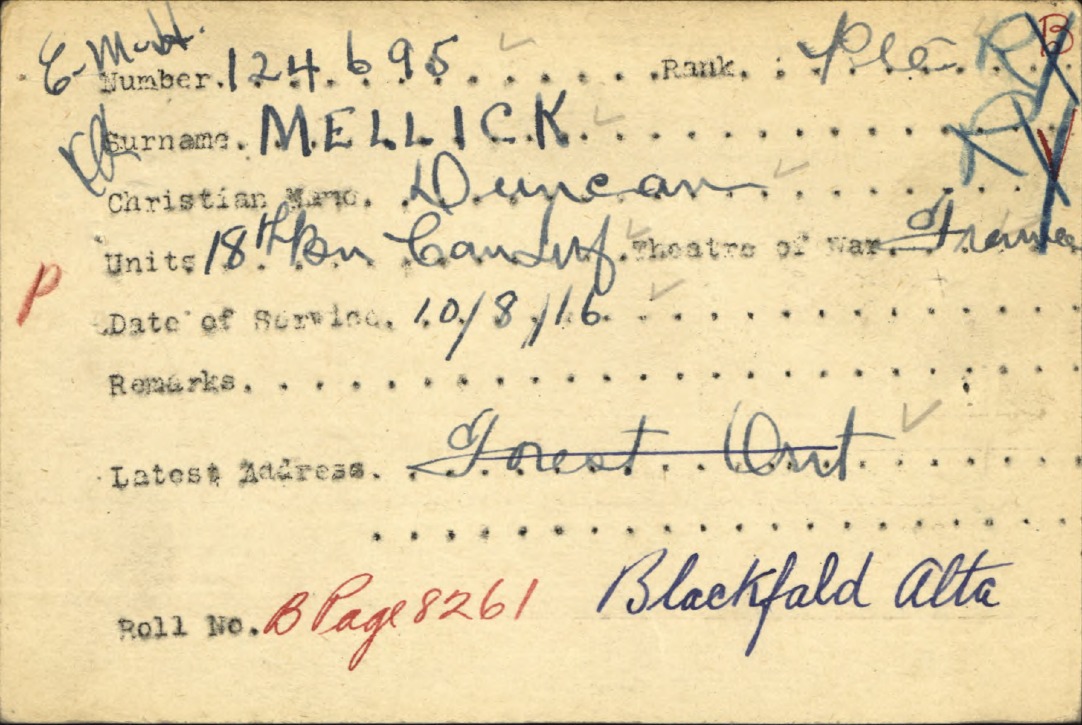 Number. 124695 Rank. Pte R B
Surname. MELLICK R V
Christian Name. Duncan
Units 18th Bn Can Inf Theatre of War. France
P
Date of Service. 10/8/16
Remarks.
Latest Address. Forest Ont
Roll No. B Page 8261 Blackfald Alta